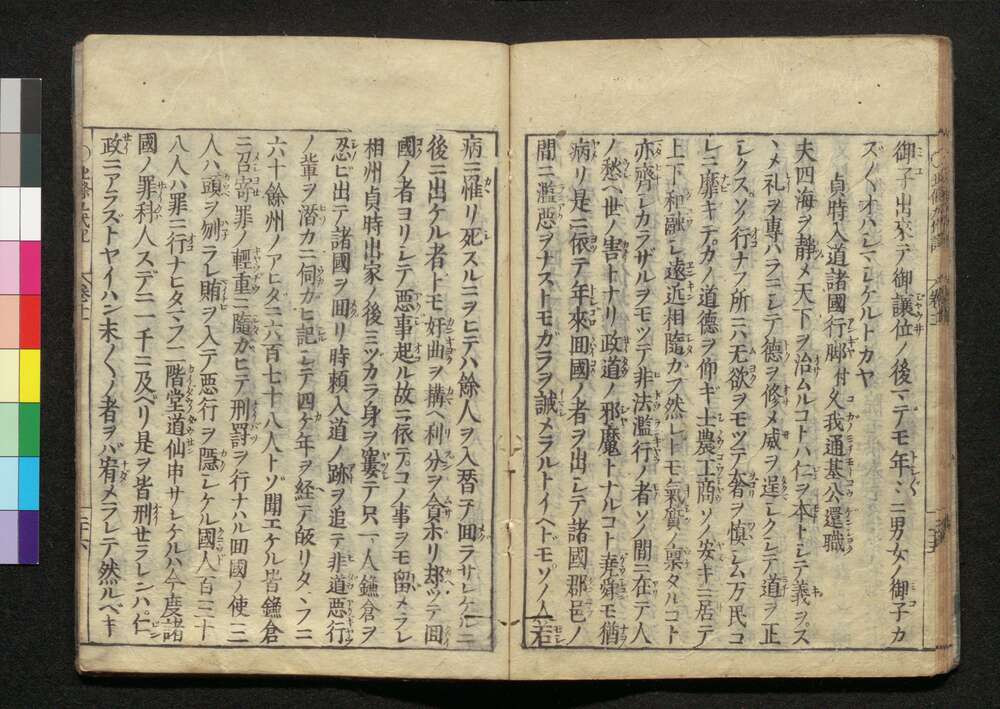 御子出來テ御讓位ノ後マデモ年々ニ男女ノ御子カ
ズ〳〵オハシマシケルトカヤ
貞時入道諸國行脚付久我通基公還職
夫四海ヲ靜メ天下ヲ治ムルコトハ仁ヲ本トシテ義ヲスヽ
メ礼ヲ專ハラニシテ德ヲ修メ威ヲ逞シクシテ道ヲ正
シクスソノ行ナフ所ニハ无欲ヲモツテ奢ヲ愼シム万民コ
レニ靡キテカノ道德ヲ仰ギ士農工商ソノ安キニ居テ
上下和融シ遠近相隨カフ然レトモ氣質ノ稟タルコト
亦齊シカラザルヲモツテ非法濫行ノ者ソノ間ニ在テ人
ノ愁ヘ世ノ害トナリ政道ノ邪魔トナルコト堯舜モ猶
病リ是ニ依テ年來回國ノ者ヲ出シテ諸國郡邑ノ
間ニ濫惡ヲナストモガラヲ誡メラルトイヘドモソノ人若
病ニ罹リ死スルニヲヒテハ餘人ヲ入替テ回ラサシケルニ
後ニ出ケル者ドモ奸曲ヲ構ヘ利分ヲ貪ホリ却ツテ回
國ノ者ヨリシテ惡事起ル故ニ依テコノ事ヲモ留メラレ
相州貞時出家ノ後ミヅカラ身ヲ窶テ只一人鎌倉ヲ
忍ビ出テ諸國ヲ回リ時頼入道ノ跡ヲ追テ非道惡行
ノ輩ヲ潜カニ伺カヒ記シテ四ケ年ヲ経テ皈リタマフニ
六十餘州ノアヒダニ六百七十八人トゾ聞エケル皆鎌倉
ニ召寄罪ノ輕重ニ隨ガヒテ刑罸ヲ行ナハル回國ノ使三
人ハ頭ヲ刎ラレ賄ヲ入テ惡行ヲ隱シケル國人百三十
八人ハ罪ニ行ナヒタマフ二階堂道仙申サレケルハ今度諸
國ノ罪科人スデニ一千ニ及ベリ是ヲ皆刑セラレンハ仁
政ニアラズトヤイハン末〳〵ノ者ヲバ宥メラレテ然ルベキ